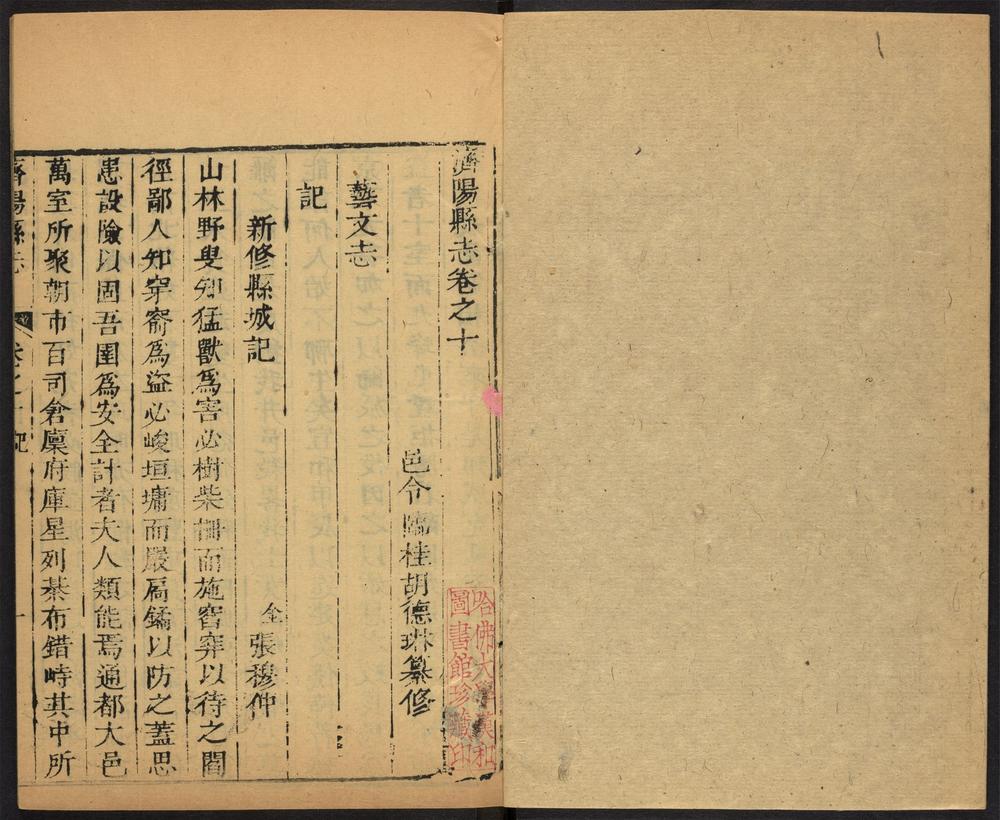 濟陽縣志卷之十
邑令臨桂胡德琳纂修
藝文志
記
新修縣城記
金張穆仲
山林野叟知猛獸為害必樹柴柵而施窖穽以待之閭
徑鄙人知穿窬為盜必峻垣墉而嚴扃鐍以防之蓋思
患設險以固吾圉為安全計者夫人類能焉通都大邑
萬室所聚朝市百司倉廩府庫星列棊布錯峙其中所
濟陽縣志
卷之十記
一
哈佛大學漢和
圖書館珍藏印